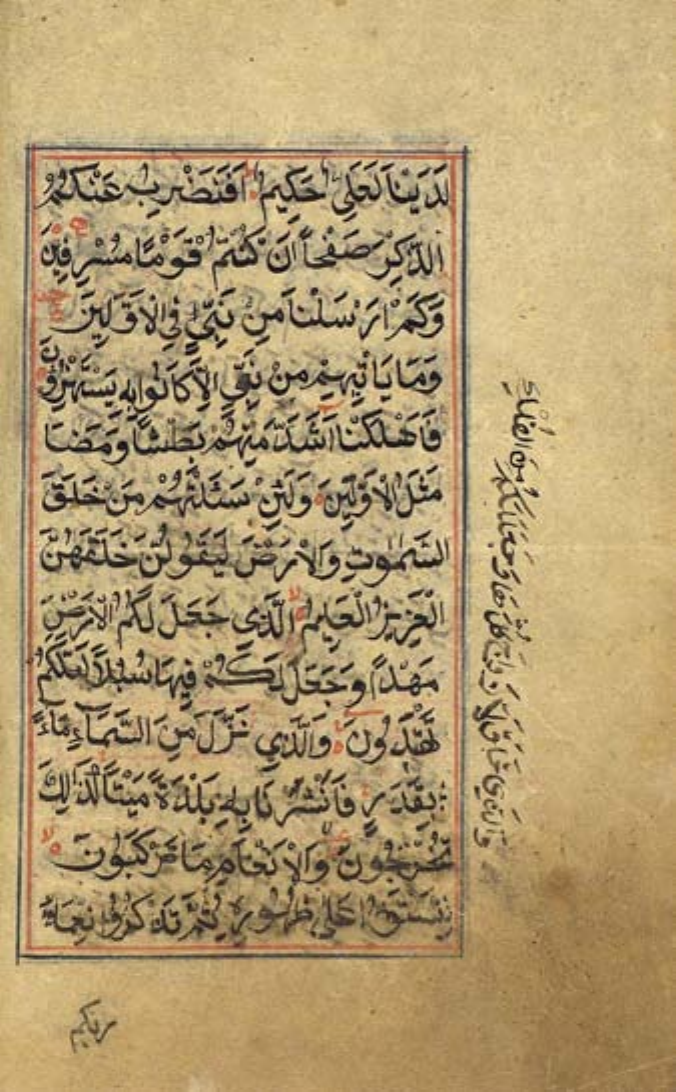 لَدَيْنَا لَعَلِيٌّ حَكِيمٌ اَفَنَضْرِبُ عَنْكُمُ
الذِّكْرَ صَفْحًا اَنْ كُنْتُمْ قَوْمًا مُسْرِفِينَ
وَكَمْ اَرْسَلْنَا مِنْ نَبِيٍّ فِي الْاَوَّلِينَ
وَمَا يَاْتِيهِمْ مِنْ نَبِيٍّ اِلَّا كَانُوا بِهِ يَسْتَهْزِؤُنَ
فَاَهْلَكْنَا اَشَدَّ مِنْهُمْ بَطْشًا وَمَضَا
مَثَلُ الْاَوَّلِينَ وَلَئِنْ سَئَلْتَهُمْ مَنْ خَلَقَ
السَّمٰوٰتِ وَالْاَرْضَ لَيَقُولُنَّ خَلَقَهُنَّ
الْعَزِيزُ الْعَلِيمُ الَّذِي جَعَلَ لَكُمُ الْاَرْضَ
مَهْدًا وَجَعَلَ لَكُمْ فِيهَا سُبُلًا لَعَلَّكُمْ
تَهْتَدُونَ وَالَّذِي نَزَّلَ مِنَ السَّمَآءِ مَآءً
بِقَدَرٍ فَاَنْشَرْنَا بِهِ بَلْدَةً مَيْتًا كَذٰلِكَ
تُخْرَجُونَ وَالْاَنْعَامِ مَا تَرْكَبُونَ
لِتَسْتَوُا عَلٰى ظُهُورِهِ ثُمَّ تَذْكُرُوا نِعْمَةَ
وَالَّذِي خَلَقَ الْاَزْوَاجَ كُلَّهَا وَجَعَلَ لَكُمْ مِنَ الْفُلْكِ
ربكم